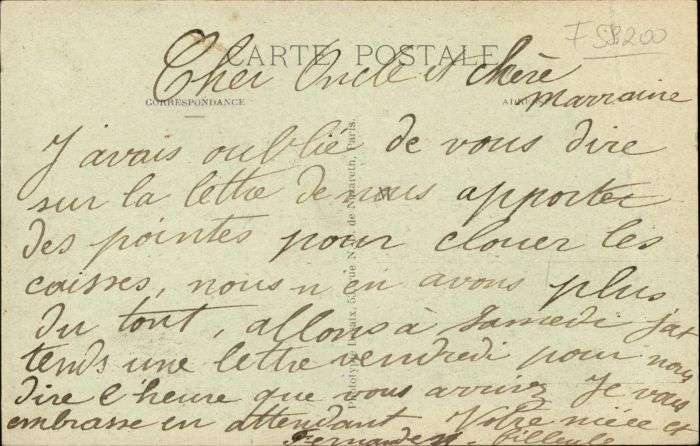 F 58200
CARTE POSTALE
Cher Oncle et chère
CORRESPONDANCE
Marraine
J'avais oublié de vous dire
sur la lettre de nous apporter
des pointes pour clouer les
caisses, nous n'en avons plus
du tout, allons à Samedi j'at
tends une lettre vendredi pour nous
dire l'heure que vous arrivez Je vous
embrasse en attendant Votre nièce et
filleule
rue N.D. de Nazareth, Paris.